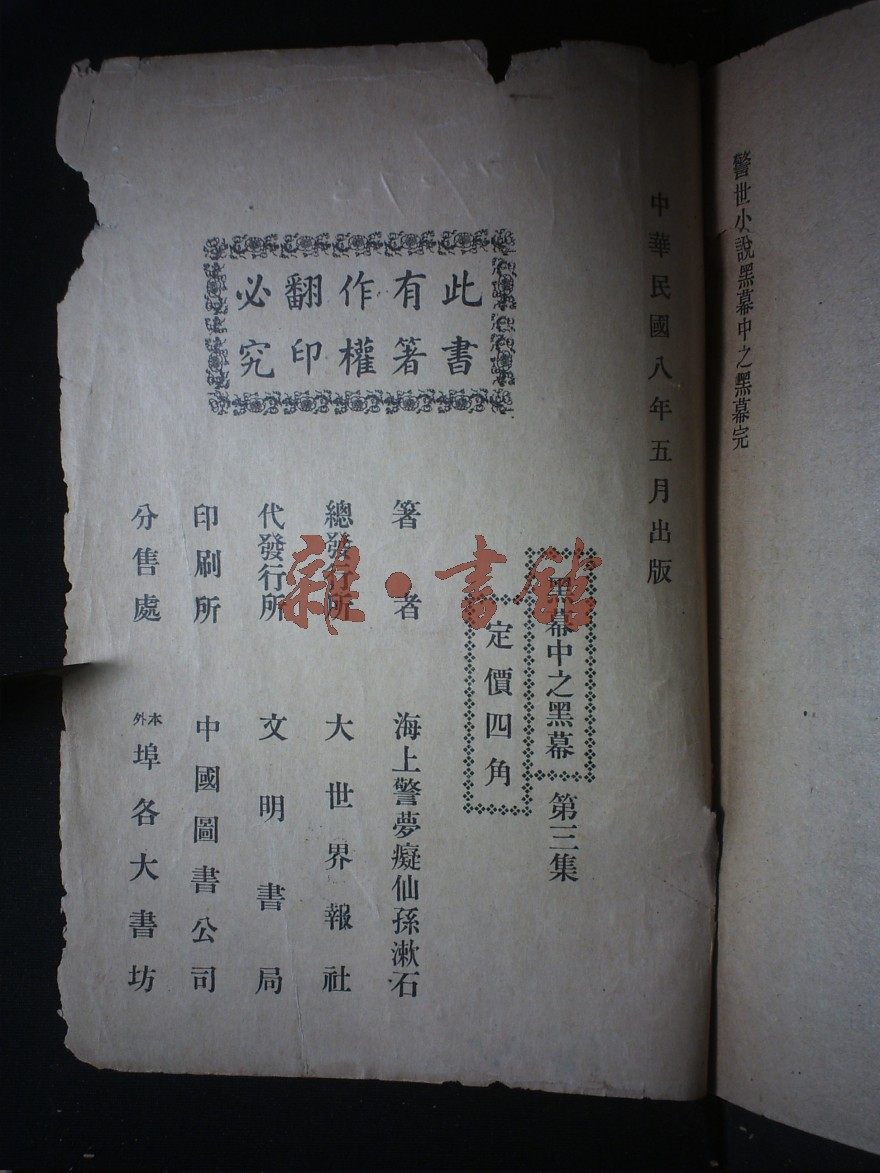 警世小說黑幕中之黑幕完
中華民國八年五月出版
黑幕中之黑幕 第三集
定價四角
此書
有著
作權
翻印
必究
著者 海上警夢癡仙孫漱石
總發行所 大世界報社
代發行所 文明書局
印刷所 中國圖書公司
分售處 本外埠各大書坊
雜·書館